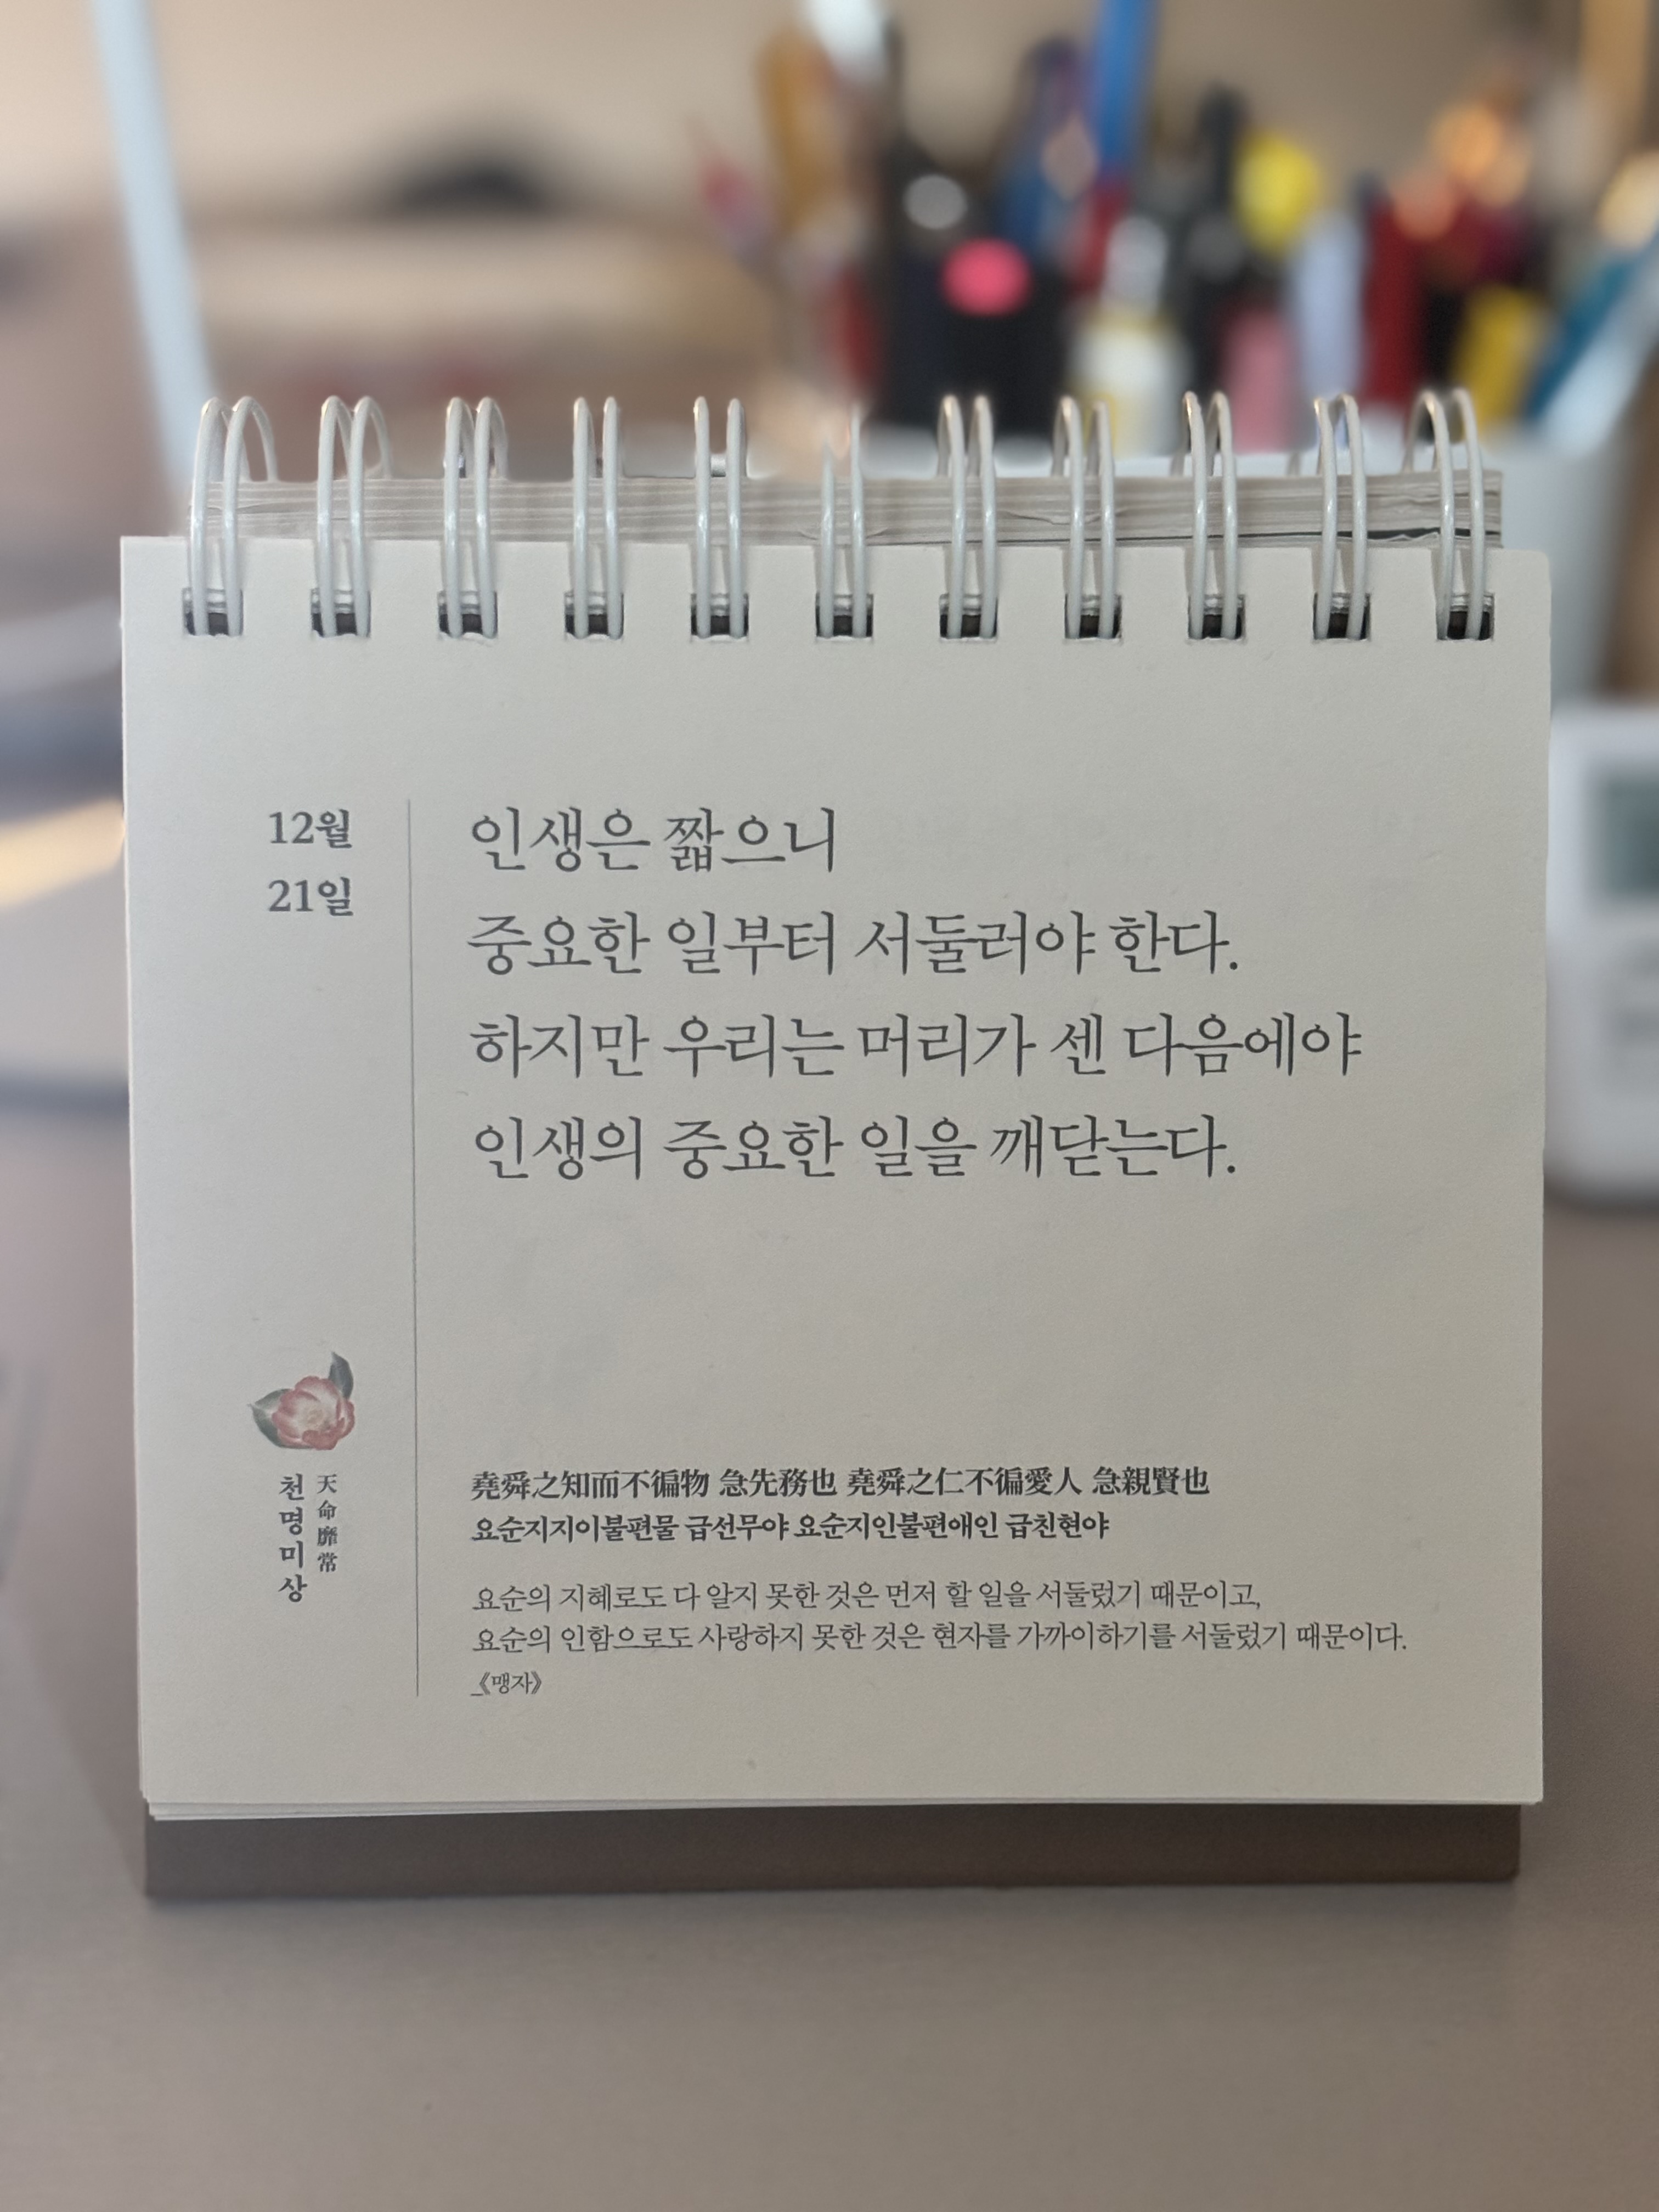 12월
21일
인생은 짧으니
중요한 일부터 서둘러야 한다.
하지만 우리는 머리가 센 다음에야
인생의 중요한 일을 깨닫는다.
天命靡常
천명미상
堯舜之知而不徧物 急先務也 堯舜之仁不徧愛人 急親賢也
요순지지이불편물 급선무야 요순지인불편애인 급친현야
요순의 지혜로도 다 알지 못한 것은 먼저 할 일을 서둘렀기 때문이고,
요순의 인함으로도 사랑하지 못한 것은 현자를 가까이하기를 서둘렀기 때문이다.
_《맹자》